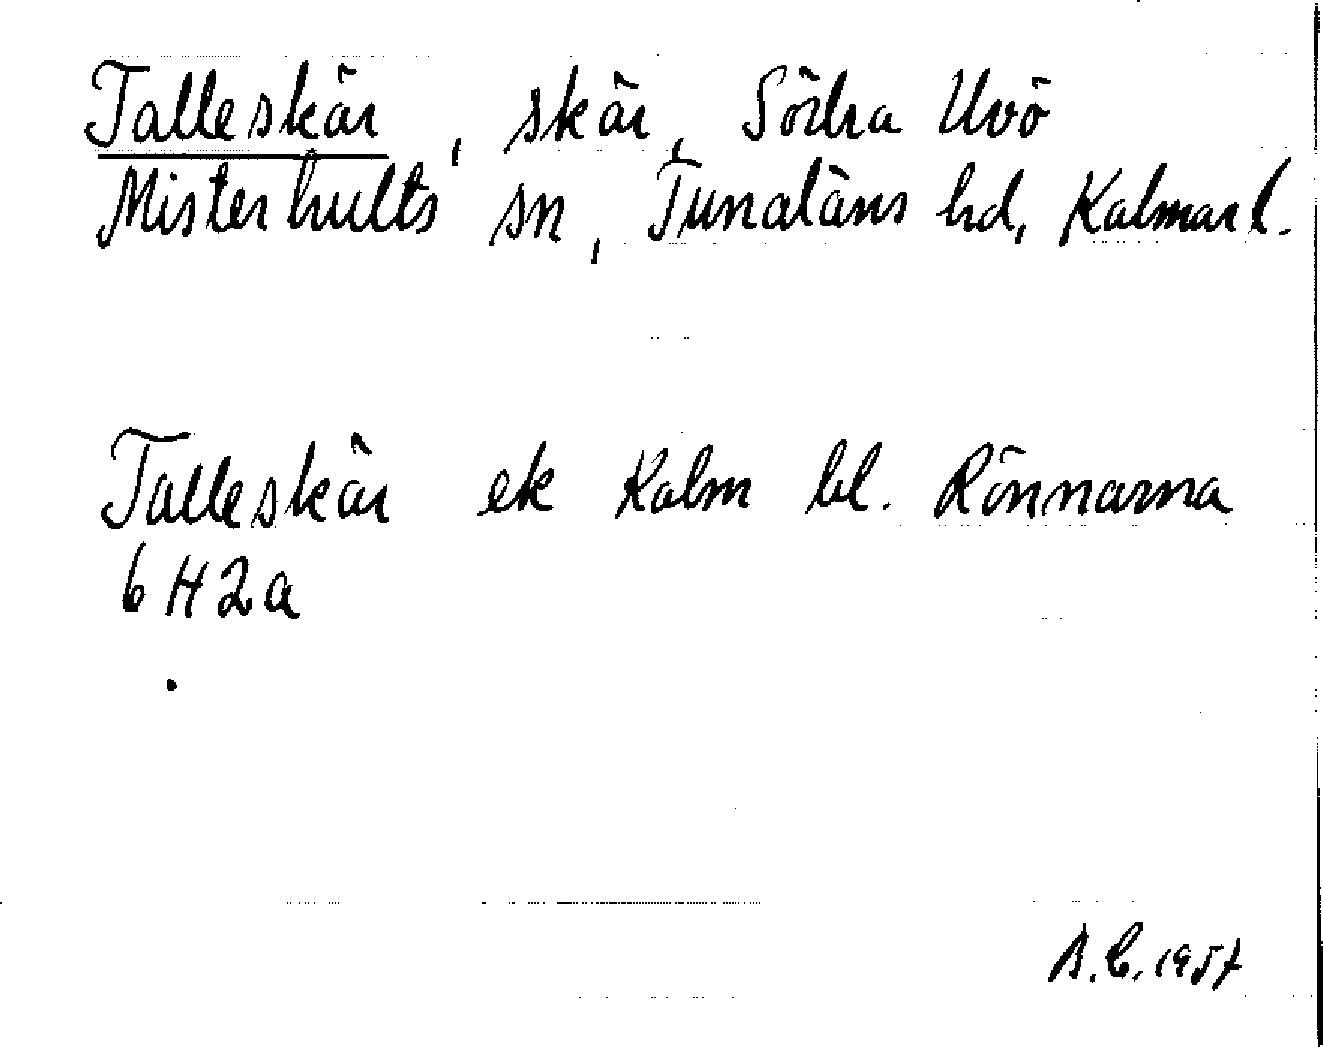 Talleskär, skär, Södra Uvö
Misterhults sn, Tunaläns hd, Kalmar l.
Talleskär ek Kalm bl. Rönnarna
6H2a
1957